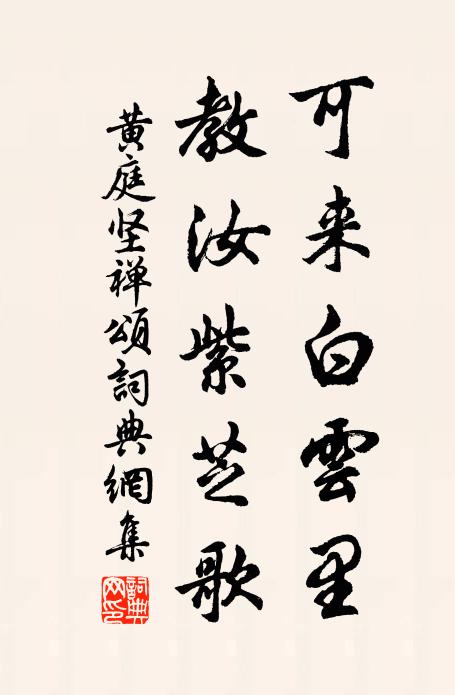 可来白雲里
教汝紫芝歌
黄庭坚禅頌詞典網集
詞典网印